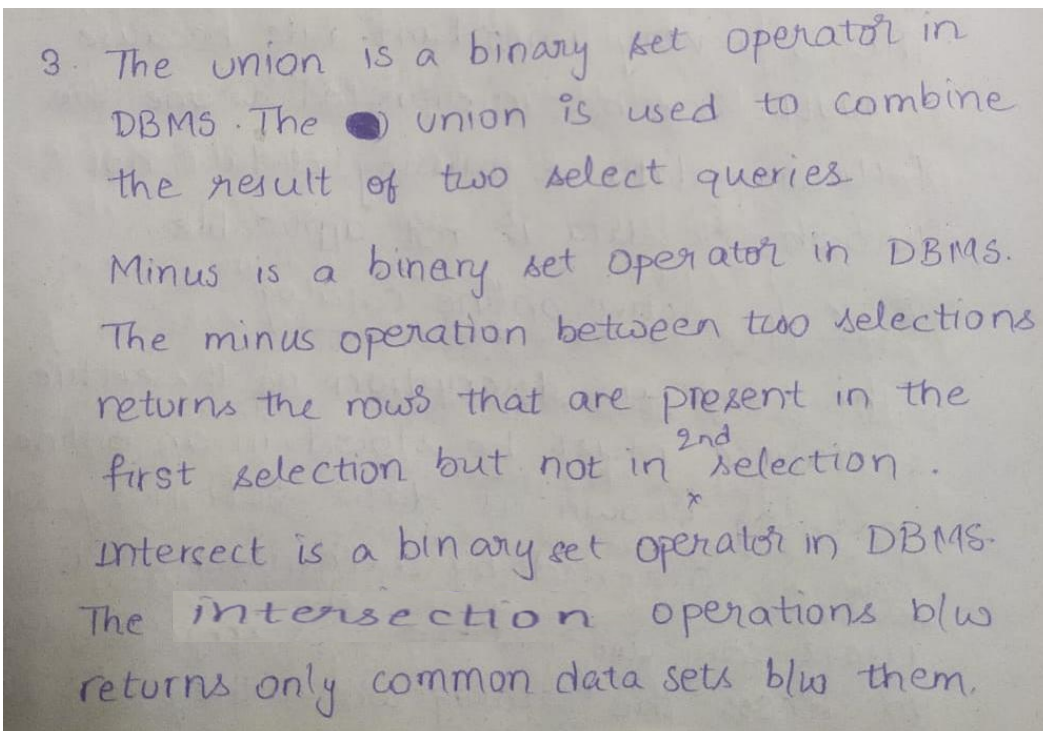 3. The union is a binary set operator in
DBMS. The union is used to combine
the result of two select queries
Minus is a binary set operator in DBMS.
The minus operation between two selections
returns the rows that are present in the
first selection but not in 2nd selection.
Intersect is a binary set operator in DBMS.
The intersection operations b/w
returns only common data sets b/w them.